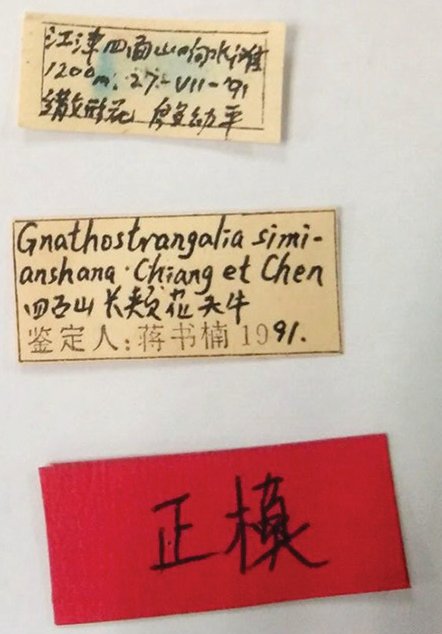 江津四面山响水滩
1200m. 27-VII-91
伞形花
Gnathostrangalia simi-
anshana Chiang et Chen
四面山长颊花天牛
鉴定人:蒋书楠 1991.
正模